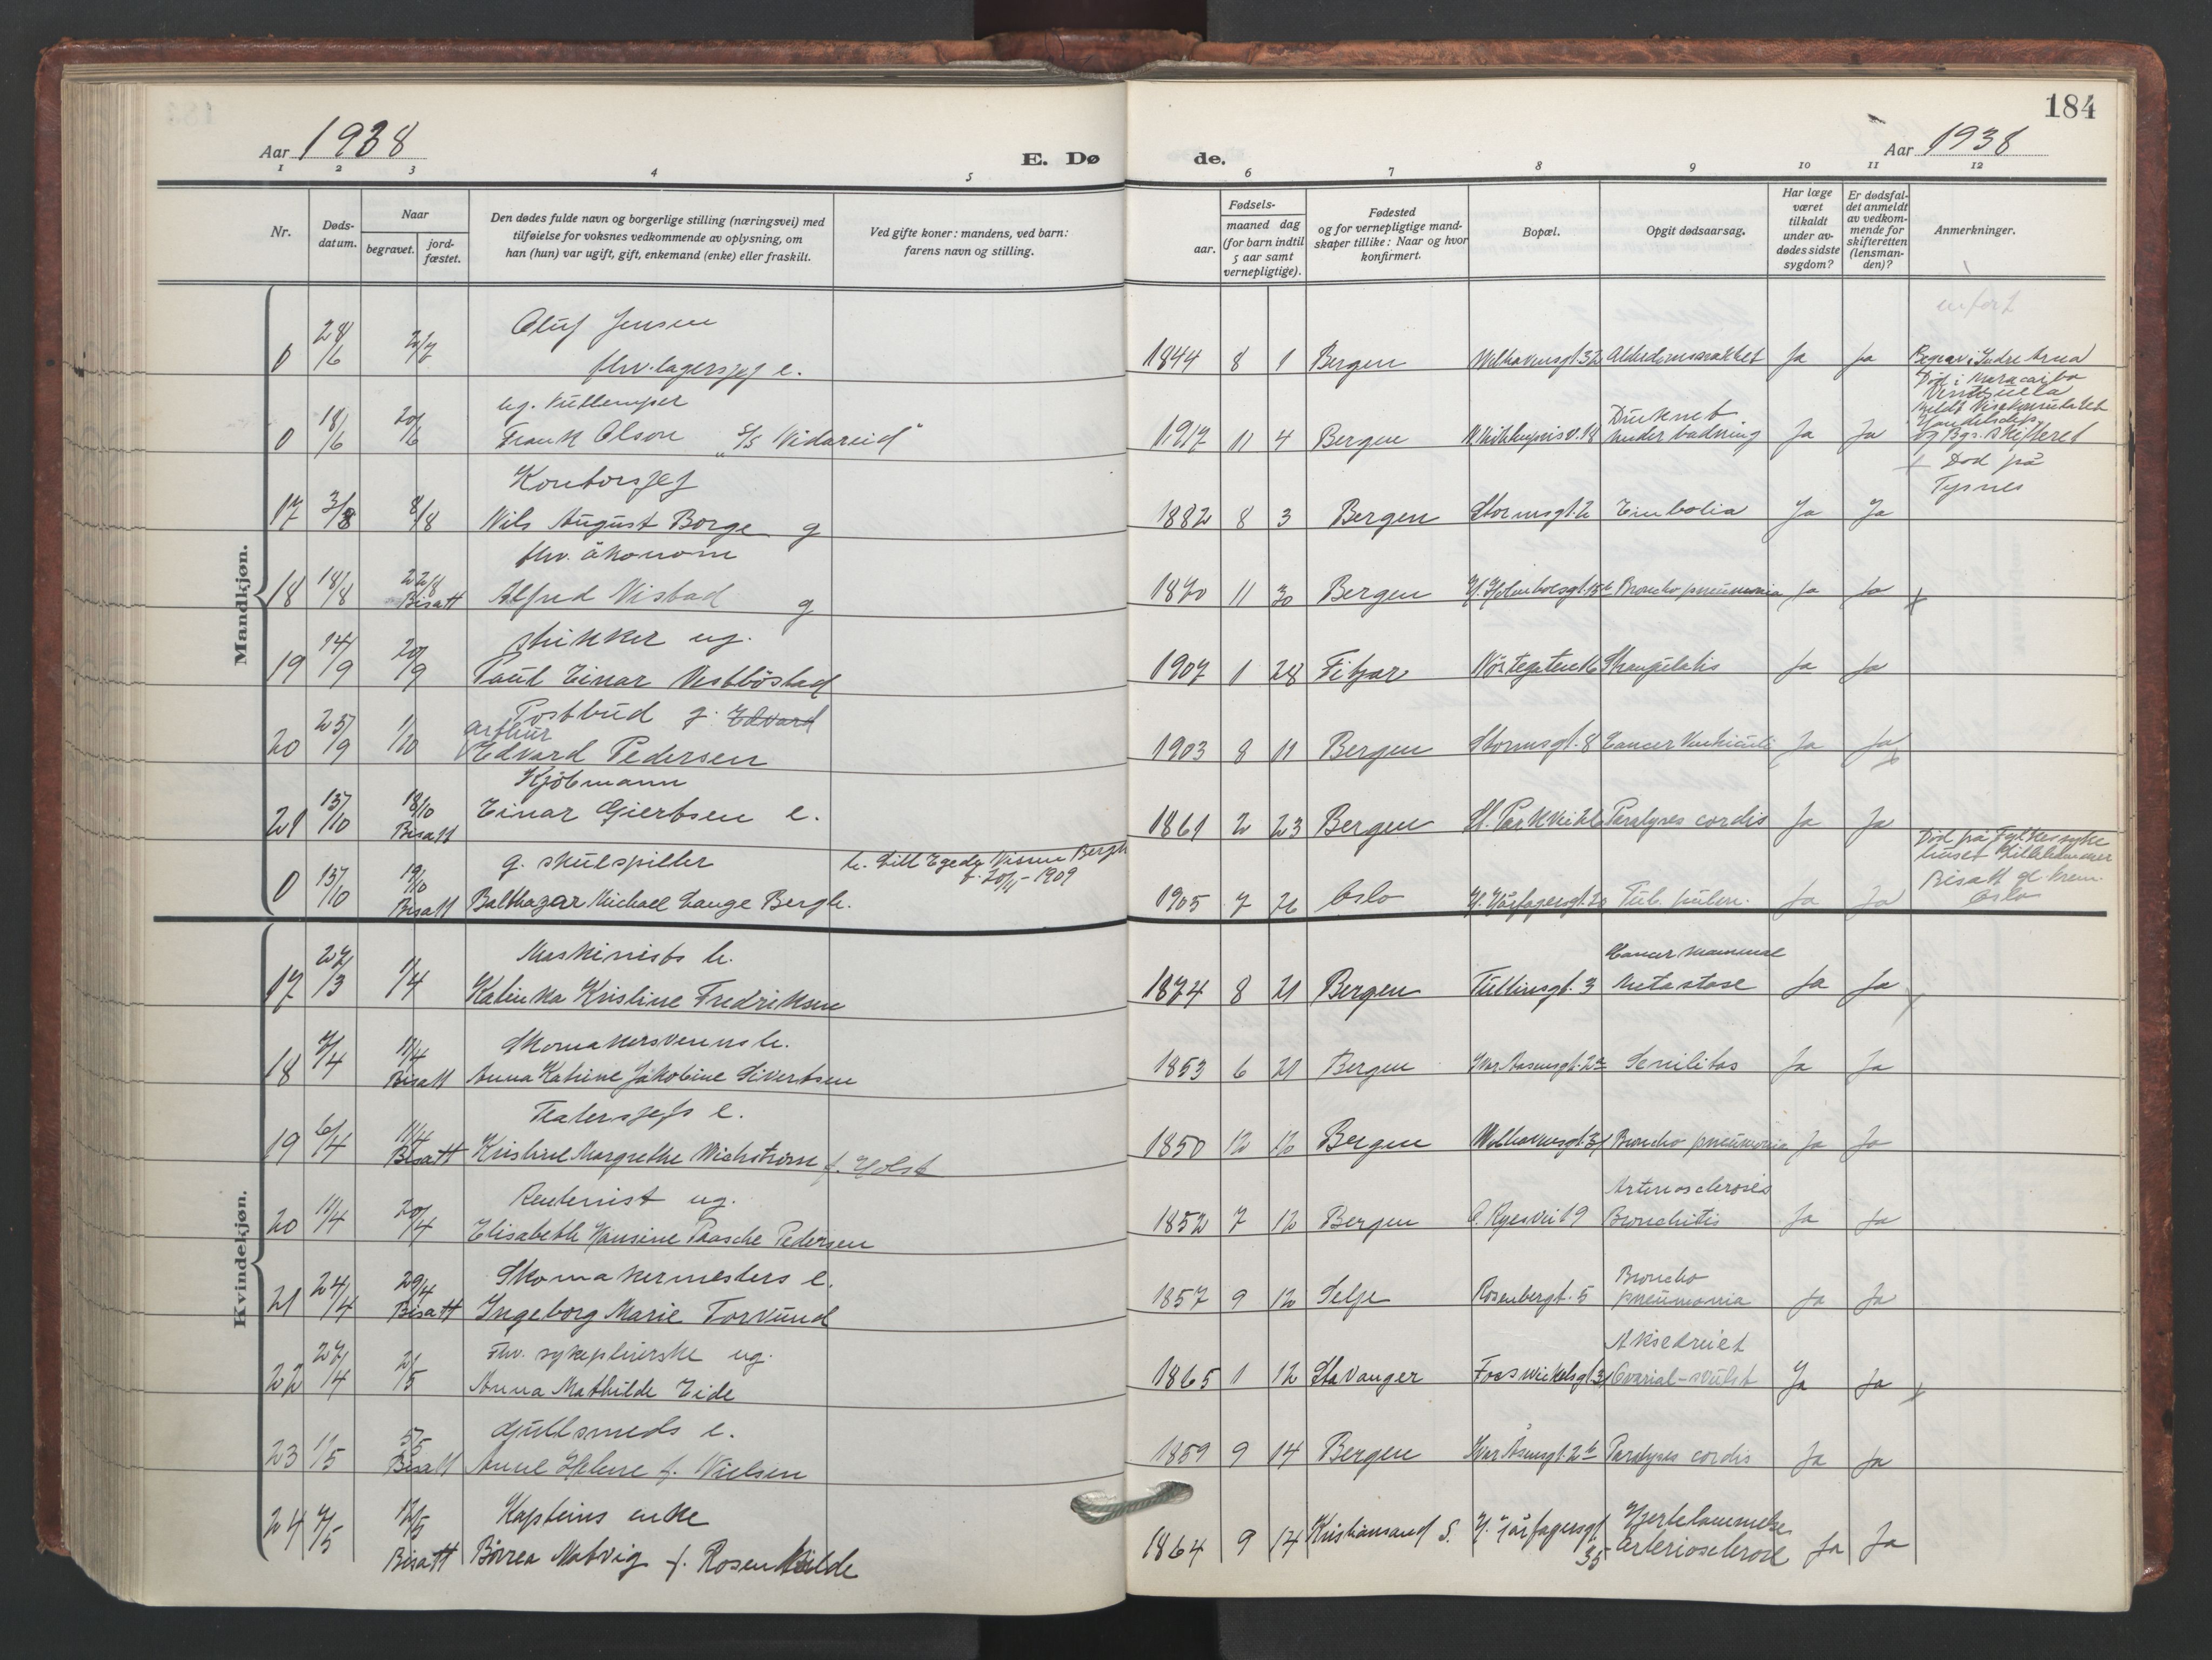 184
Aar 1938
E. Dø
de.
Aar 1938
1 2 3 4 5 6 7 8 9 10 11 12
Nr.
Døds-
datum.
Naar
begravet.
jord-
fæstet.
Den dødes fulde navn og borgerlige stilling (næringsvei) med
tilføielse for voksnes vedkommende av oplysning, om
han (hun) var ugift, gift, enkemand (enke) eller fraskilt.
Ved gifte koner: mandens, ved barn:
farens navn og stilling.
Fødsels-
aar.
maaned dag
(for barn indtil
5 aar samt
vernepligtige).
Fødested
og for vernepligtige mand-
skaper tillike: Naar og hvor
konfirmert.
Bopæl.
Opgit dødsaarsag.
Har læge
været
tilkaldt
under av-
dødes sidste
sygdom?
Er dødsfal-
det anmeldt
av vedkom-
mende for
skifteretten
(lensman-
den)?
Anmerkninger.
Mandkjøn.
Oluf Jensen
0 28/6 2/7 fhv. lagersjef e. 1844 8 1 Bergen Welhavensgt. 32 Ja Ja Begrav. i Indre Arna
Død i Maracaibo
ug.
Druknet
0 18/6 20/6 Frank Olson "S/S Vidareid" 1917 11 4 Bergen under badning Ja Ja og Bgs. skifteret
Kontorsjef
+ Død på
Tysnes
17 3/8 8/8 Nils August Borge g 1882 8 3 Bergen Stormsgt. 2 Embolia Ja Ja
fhv. økonom
18 18/8 22/8 Bisatt Alfred Visted g 1870 11 30 Bergen Broncho pneumonia Ja Ja x
ug.
19 14/9 20/9 Paul Einar Vestbøstad 1907 1 28 Fitjar Nöstegaten Strangulatis Ja Ja
Postbud g. Edvard
Arthur
20 25/9 1/10 Edvard Pedersen 1903 8 11 Bergen Stormsgt. 8 Cancer Ventriculi Ja Ja x
Kjöbmann
21 15/10 18/10 Bisatt Einar Giertsen e. 1861 2 23 Bergen Paralyses cordis Ja Ja
g. skuespiller
h. Lill Egeda Nissen Bergh
f. 20/11-1909
Død på Fylkessyke
huset Lillehammer
Bisatt gl. krem.
Oslo
0 15/10 19/10 Bisatt Balthazar Michael Lange Bergh. 1905 7 26 Oslo H. Hårfagersgt. 20 Tub. pulm. Ja Ja
Kvindekjøn.
Maskinists h.
Cancer mammae
17 27/3 1/4 Katinka Kristine Fredriksen 1874 8 21 Bergen Tullinsgt. 3 Metastase Ja Ja
Skomakersvenns h.
18 7/4 11/4 Bisatt Anna Katrine Jakobine Sivertsen 1853 6 21 Bergen Ivar Aasensgt. 2a Senilitas Ja Ja
Teatersjefs e.
19 6/4 11/4 Bisatt Kristine Margrethe Wichstrøm f. Holst 1850 12 12 Bergen Welhavensgt. 31 Broncho pneumonia Ja Ja
Rentenist ug.
Arteriosclerosis
20 11/4 20/4 Elisabeth Hansine Paasche Pedersen 1852 7 12 Bergen O. Ryesvei 19 Bronchitis Ja Ja
Skomakermesters e.
Broncho
21 24/4 29/4 Bisatt Ingeborg Marie Torvund 1857 9 12 Selje Rosenbergt. 5 pneumonia Ja Ja
Fhv. sykepleierske ug.
Aksedreiet
22 27/4 2/5 Anna Mathilde Eide 1865 1 12 Stavanger Foswinkelsgt 31 Ovarial-svulst Ja Ja x
Gullsmeds e.
23 1/5 5/5 Bisatt Anne Helene f. Nielsen 1859 9 14 Bergen Ivar Åsensgt. 2b Paralyses cordis Ja Ja
Kapteins enke
Hjertelammelse
24 7/5 12/5 Bisatt Børrea Matvig f. Rosenkilde 1864 9 14 Kristiansand S. H. Hårfagersgt. 35 Arteriosclerose Ja Ja